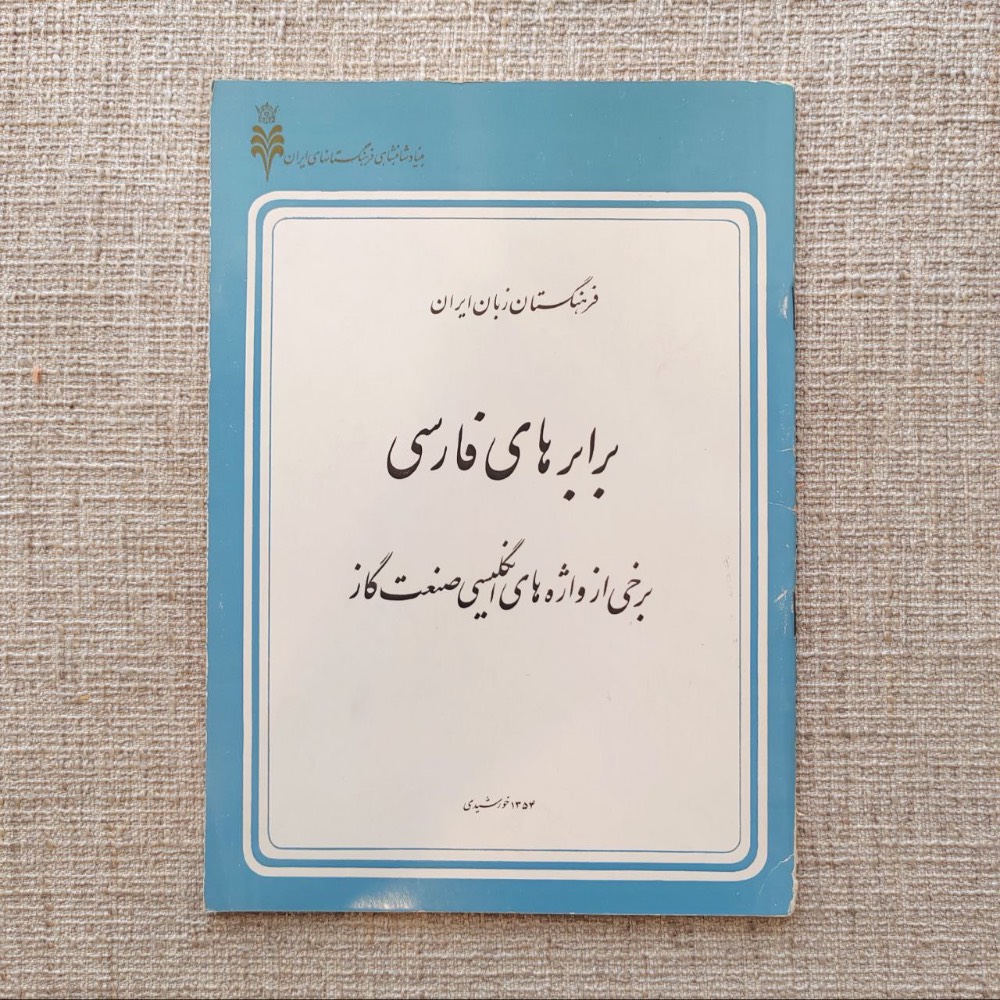 بنیاد شاهنشاهی فرهنگستانهای ایران
فرهنگستان زبان ایران
برابرهای فارسی
برخی از واژه های انگلیسی صنعت گاز
۱۳۵۴ خورشیدی